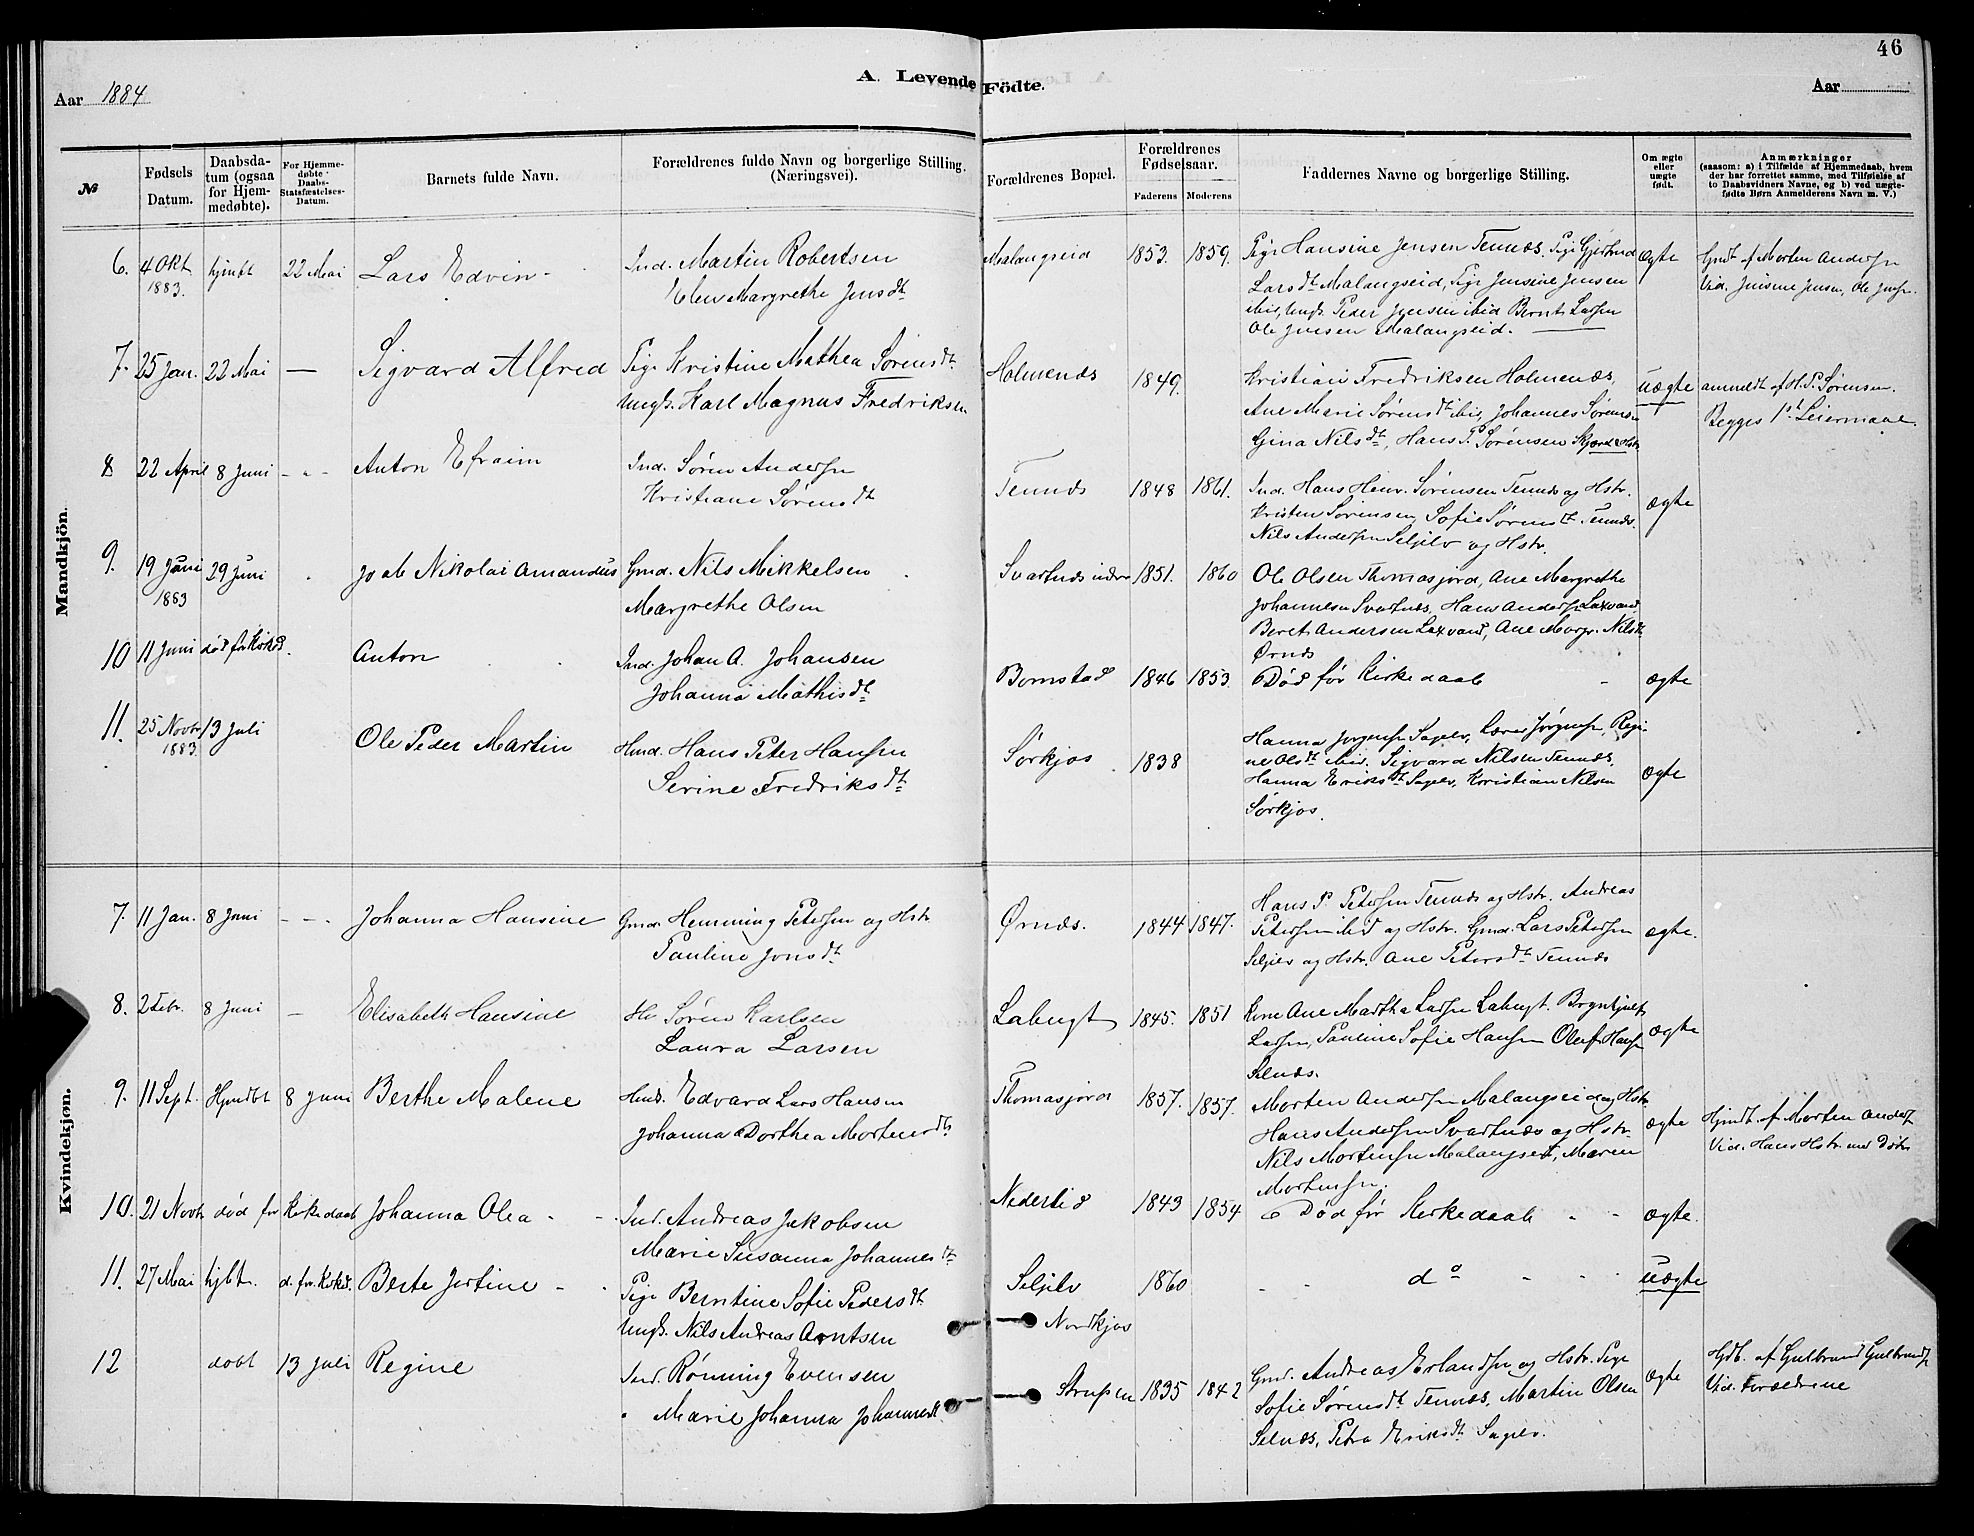 46
A. Levende Födte.
Aar 1884
Aar
№
Fødsels Datum.
Daabsdatum (ogsaa for Hjemmedøbte).
For Hjemmedøbte Daabs-Statsfæstelses-Datum.
Barnets fulde Navn.
Forældrenes fulde Navn og borgerlige Stilling. (Næringsvei).
Forældrenes Bopæl.
Forældrenes Fødselsaar.
Faderens Moderens
Faddernes Navne og borgerlige Stilling.
Om ægte eller uægte født.
Anmærkninger
(saasom: a) i Tilfælde af Hjemmedaab, hvem der har forrettet samme, med Tilføielse af to Daabsvidners Navne, og b) ved uægtefødte Børn Anmelderens Navn m. V.)
Mandkjön.
6. 4 Okt 1883. hjmbt 22 Mai Lars Edvin
Ind. Martin Robertsen
Elen Margrethe Jensdt
Malangseid 1853. 1859.
Pige Hansine Jensen Tennæs, Pige Gjertrud
Larsdt Malangseid, Pige Jensine Jensen
ibid, Ungk. Peder Jensen ibid Bernt Larsen
Ole Jensen Malangseid.
Ægte
Hjmdt af Morten Andersen
Vid. Jensine Jensen, Ole Jensen.
7. 25 Jan. 22 Mai — Sigvard Alfred
Pige Kristine Mathea Sørensdt
Ungk. Karl Magnus Fredriksen
Holmenæs 1849.
Kristian Fredriksen Holmenæs,
Ane Marie Sørensdt ibid, Johannes Sørensen
Gina Nilsdt, Hans P. Sørensen Skjæret Hstr.
uægte
anmeldt af H. P. Sørensen.
Begges 1st Leiermaal.
8 22 April 8 Juni - - Anton Efraim
Ind. Sören Andersen
Kristiane Sørensdt
Tennæs 1848 1861.
Ind. Hans Henr. Sörensen Tennæs og Hstr.
Kristen Sørensen, Sofie Sørensdt Tennæs.
Nils Andersen Seljelv og Hstr.
ægte
9. 19 Juni 1883 29 Juni Joab Nikolai Amandus
Gmd. Nils Mikkelsen
Margrethe Olsen
Svartnæs indre 1851. 1860
Ole Olsen Thomasjord, Ane Margrethe
Johannesen Svartnæs, Hans Andersen Laxvand
Beret Andersen Laxvand, Ane Margr. Nilsdt
Ørnæs
10 11 Juni død før Kirked. Anton
Ind. Johan A. Johansen
Johanna Mathisdt
Bomstad 1846 1853. Död før Kirkedaab ægte
11. 25 Novbr 1883 13 Juli Ole Peder Martin
Hmd. Hans Peter Hansen
Serine Fredriksdt
Sørkjos 1838
Hanna Jørgensen Sagelv, Jørgensen, Regi-
ne Olsdt ibid. Sigvard Nilsen Tennæs,
Hanna Eriksdt Sagelv, Kristian Nilsen
Sørkjos.
ægte
Kvindekjön.
7. 11 Jan. 8 Juni - - - Johanna Hansine
Gmd. Hemming Petersen og Hstr
Pauline Jonsdt
Ørnæs. 1844 1847.
Hans P. Petersen Tennæs og Hstr. Andreas
Petersen ibid og Hstr. Gmd. Lars Petersen
Seljelv og Hstr. Ane Petersdt Tennæs
ægte.
8. 2 Febr. 8 Juni — Elisabeth Hansine
Hv Søren Karlsen
Laura Larsen
Labugt 1845. 1851
Kone Ane Martha Larsen Labugt. Brynhjulf
Larsen, Pauline Sofie Hansen Oluf Hansen
Selnæs.
ægte
9. 11 Sept. Hjmdbt 8 Juni Berthe Malene
Hmd. Edvard Lars Hansen
Johanna Dorthea Mortensdt
Thomasjord 1857. 1857.
Morten Andersen Malangseid og Hstr.
Hans Andersen Svartnæs og Hstr.
Nils Mortensen Malangseid, Maren
Mortensen.
ægte
Hjmdt af Morten Anders.
Vid. Hans Hstr. med Datter
10. 21 Novbr død før Kirkedaab Johanna Olea
Ind. Andreas Jakobsen
Marie Susanna Johannesdt
Nedertid 1843 1854 Död før Kirkedaab - - ægte.
11. 27 Mai hjbt. d. før Kirked. Berte Justine
Pige Berntine Sofie Pedersdt
Ungk. Nils Andreas Arntsen
Seljelv 1860 - - do - - uægte
Nordkjos
12 døbt 13 Juli Regine
Ind. Rønning Evensen
" Marie Johanna Johannesdt
Strupen 1835 1842
Gmd. Andreas Erlandsen og Hstr. Pige
Sofie Sørensdt Tennæs, Martin Olsen
Selnæs, Petra Eriksdt Sagelv.
ægte
Hjdb. af Gulbrand Gulbrands.
Vid. Forældrene